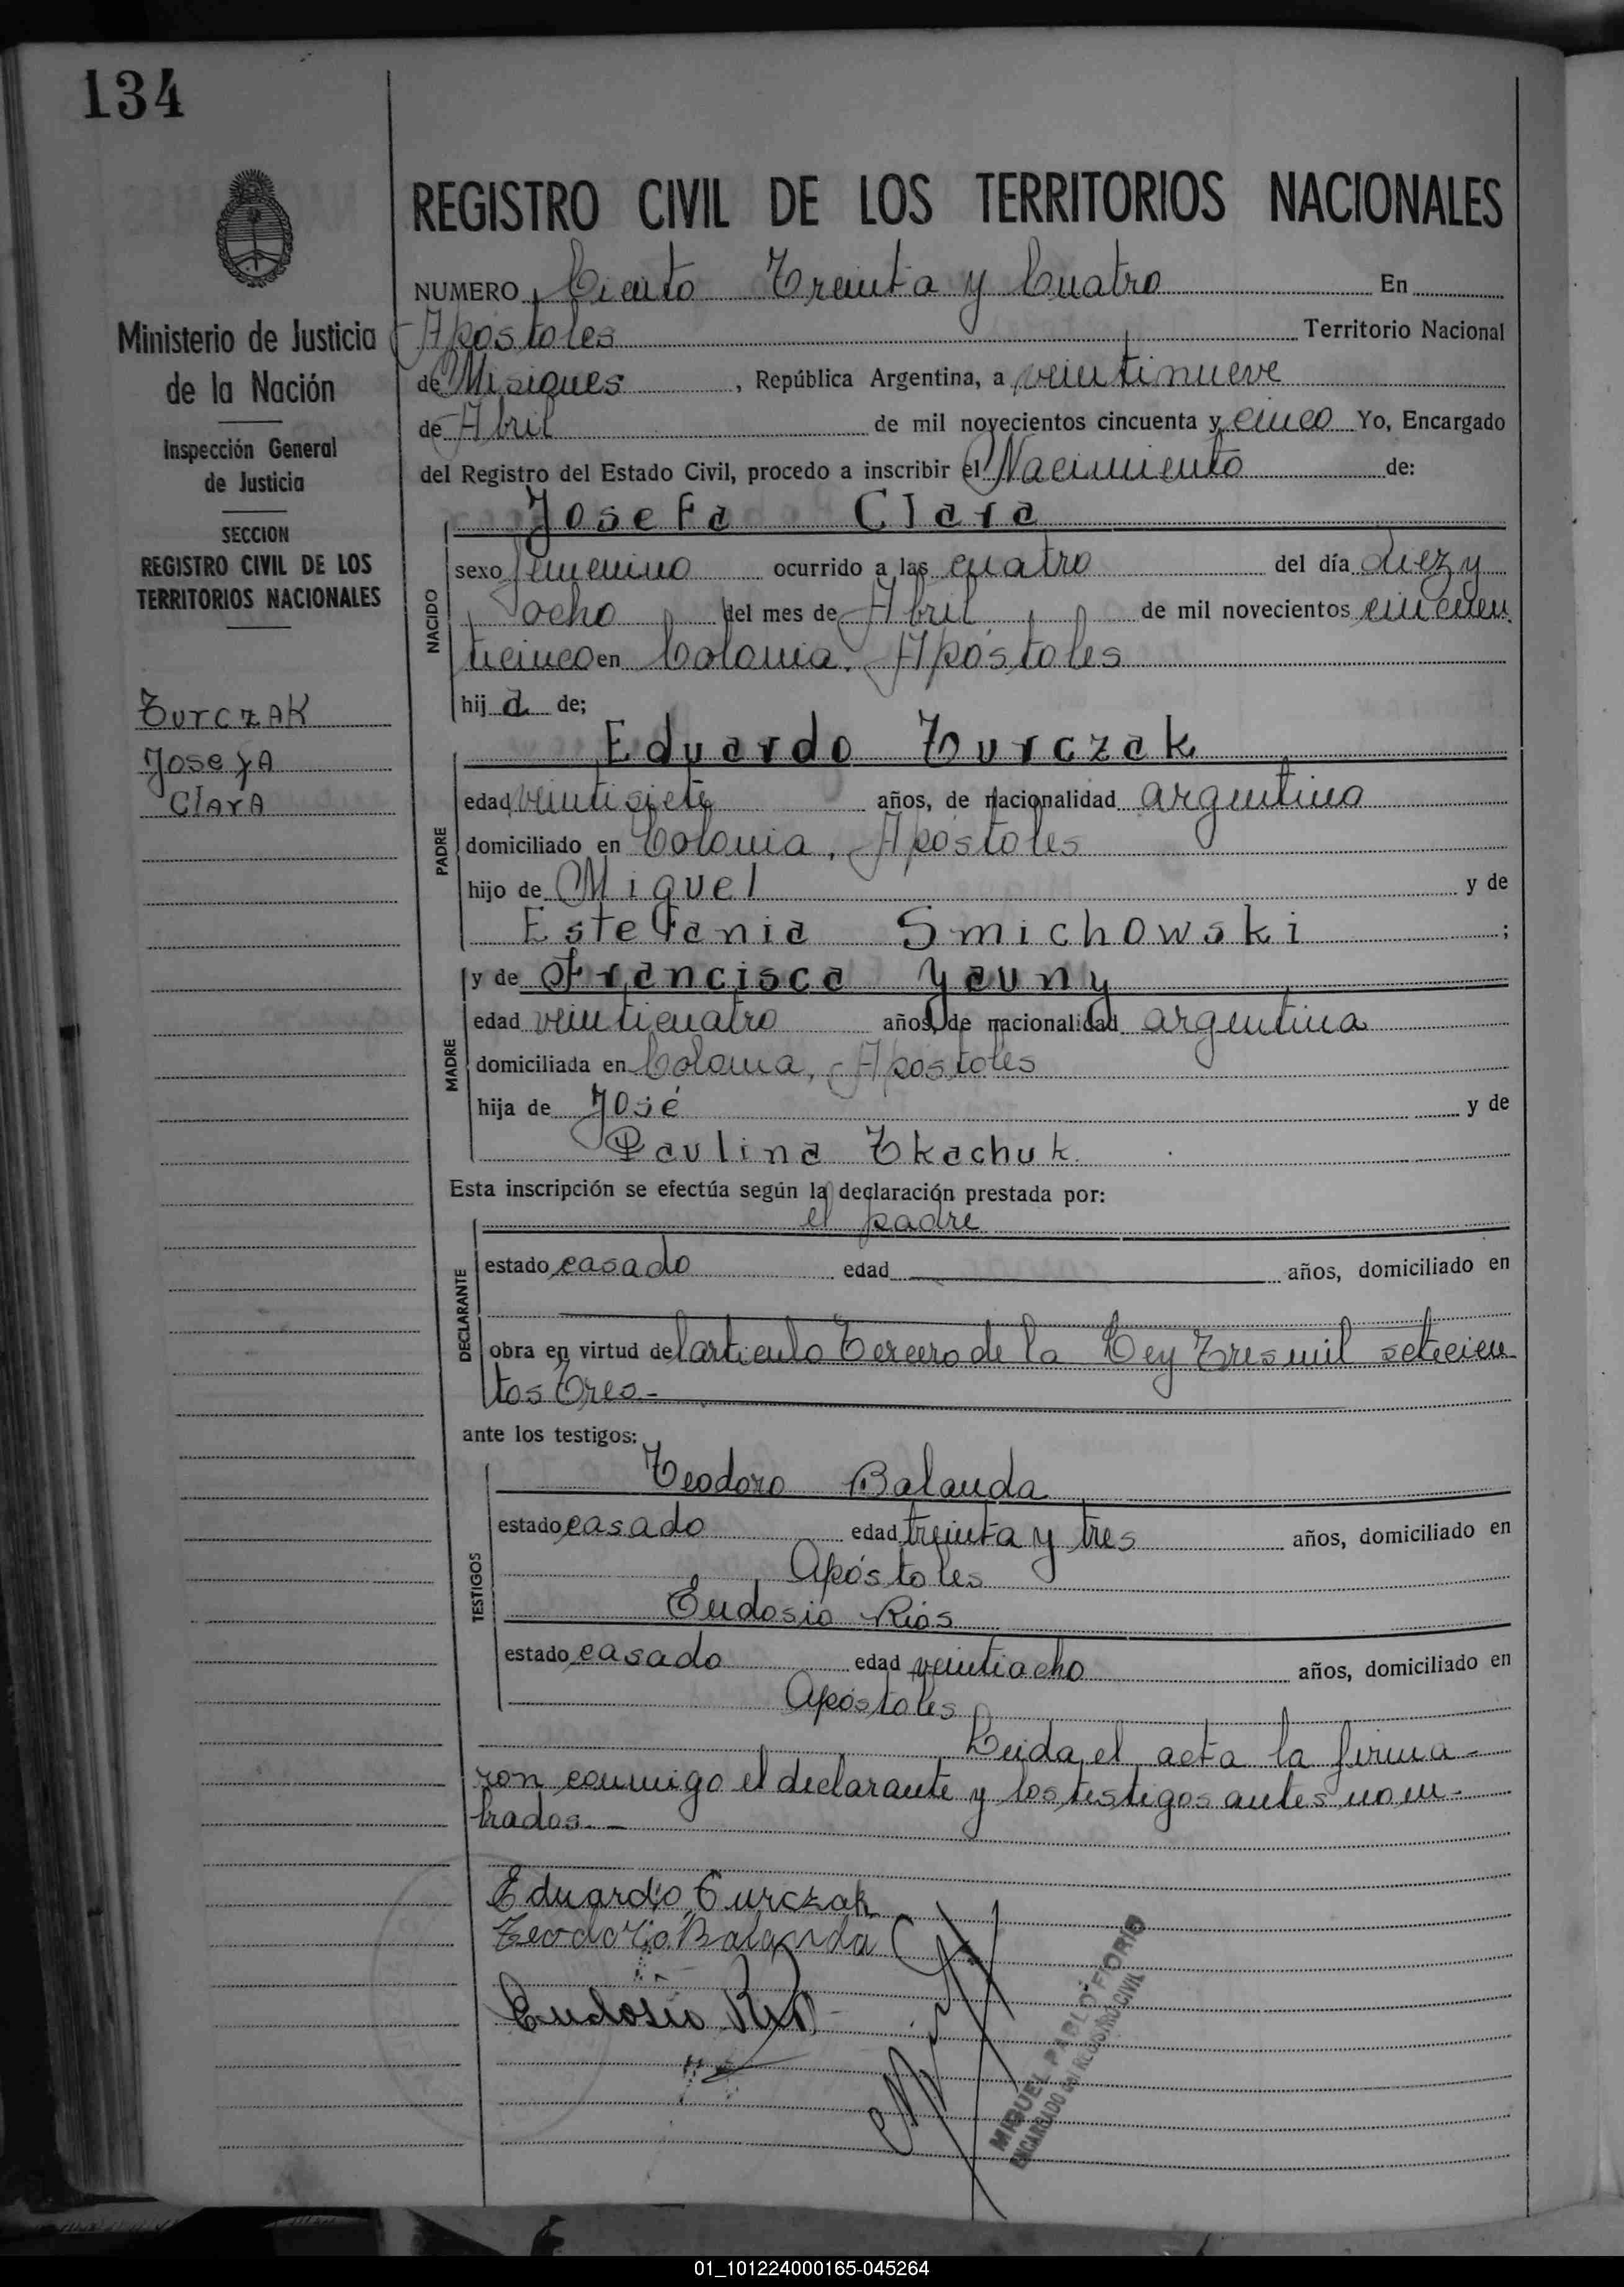 134
REGISTRO CIVIL DE LOS TERRITORIOS NACIONALES
NUMERO Ciento Treinta y Cuatro En
Apóstoles Territorio Nacional
de Misiones, República Argentina, a veintinueve
de Abril de mil novecientos cincuenta y cinco Yo, Encargado
del Registro del Estado Civil, procedo a inscribir el Nacimiento de:
Josefa Clara
sexo femenino ocurrido a las cuatro del día diez y
ocho del mes de Abril de mil novecientos cincuen
ticinco en Colonia, Apóstoles
hij a de;
Eduardo Turczak
edad veintisiete años, de nacionalidad argentino
domiciliado en Colonia, Apóstoles
hijo de Miguel y de
Estefania Smichowski ;
y de Francisca Yauny
edad veinticuatro años, de nacionalidad argentina
domiciliada en Colonia, Apóstoles
hija de José y de
Paulina Tkachuk.
Esta inscripción se efectúa según la declaración prestada por:
el padre
estado casado edad años, domiciliado en
obra en virtud del artículo Tercero de la Ley Tres mil setecien
tos Tres.-
ante los testigos:
Teodoro Balanda
estado casado edad treinta y tres años, domiciliado en
Apóstoles
Eudosio Rios
estado casado edad veintiocho años, domiciliado en
Apóstoles
Leida el acta la firma-
ron conmigo el declarante y los testigos antes nom-
brados.-
Eduardo Turczak
Teodorio Balanda
Eudosio Rios
MIGUEL PABLO FIORIO
ENCARGADO del REGISTRO CIVIL
Ministerio de Justicia
de la Nación
Inspección General
de Justicia
SECCION
REGISTRO CIVIL DE LOS
TERRITORIOS NACIONALES
TurczAK
JosefA
ClarA
NACIDO
PADRE
MADRE
DECLARANTE
TESTIGOS
01_101224000165-045264